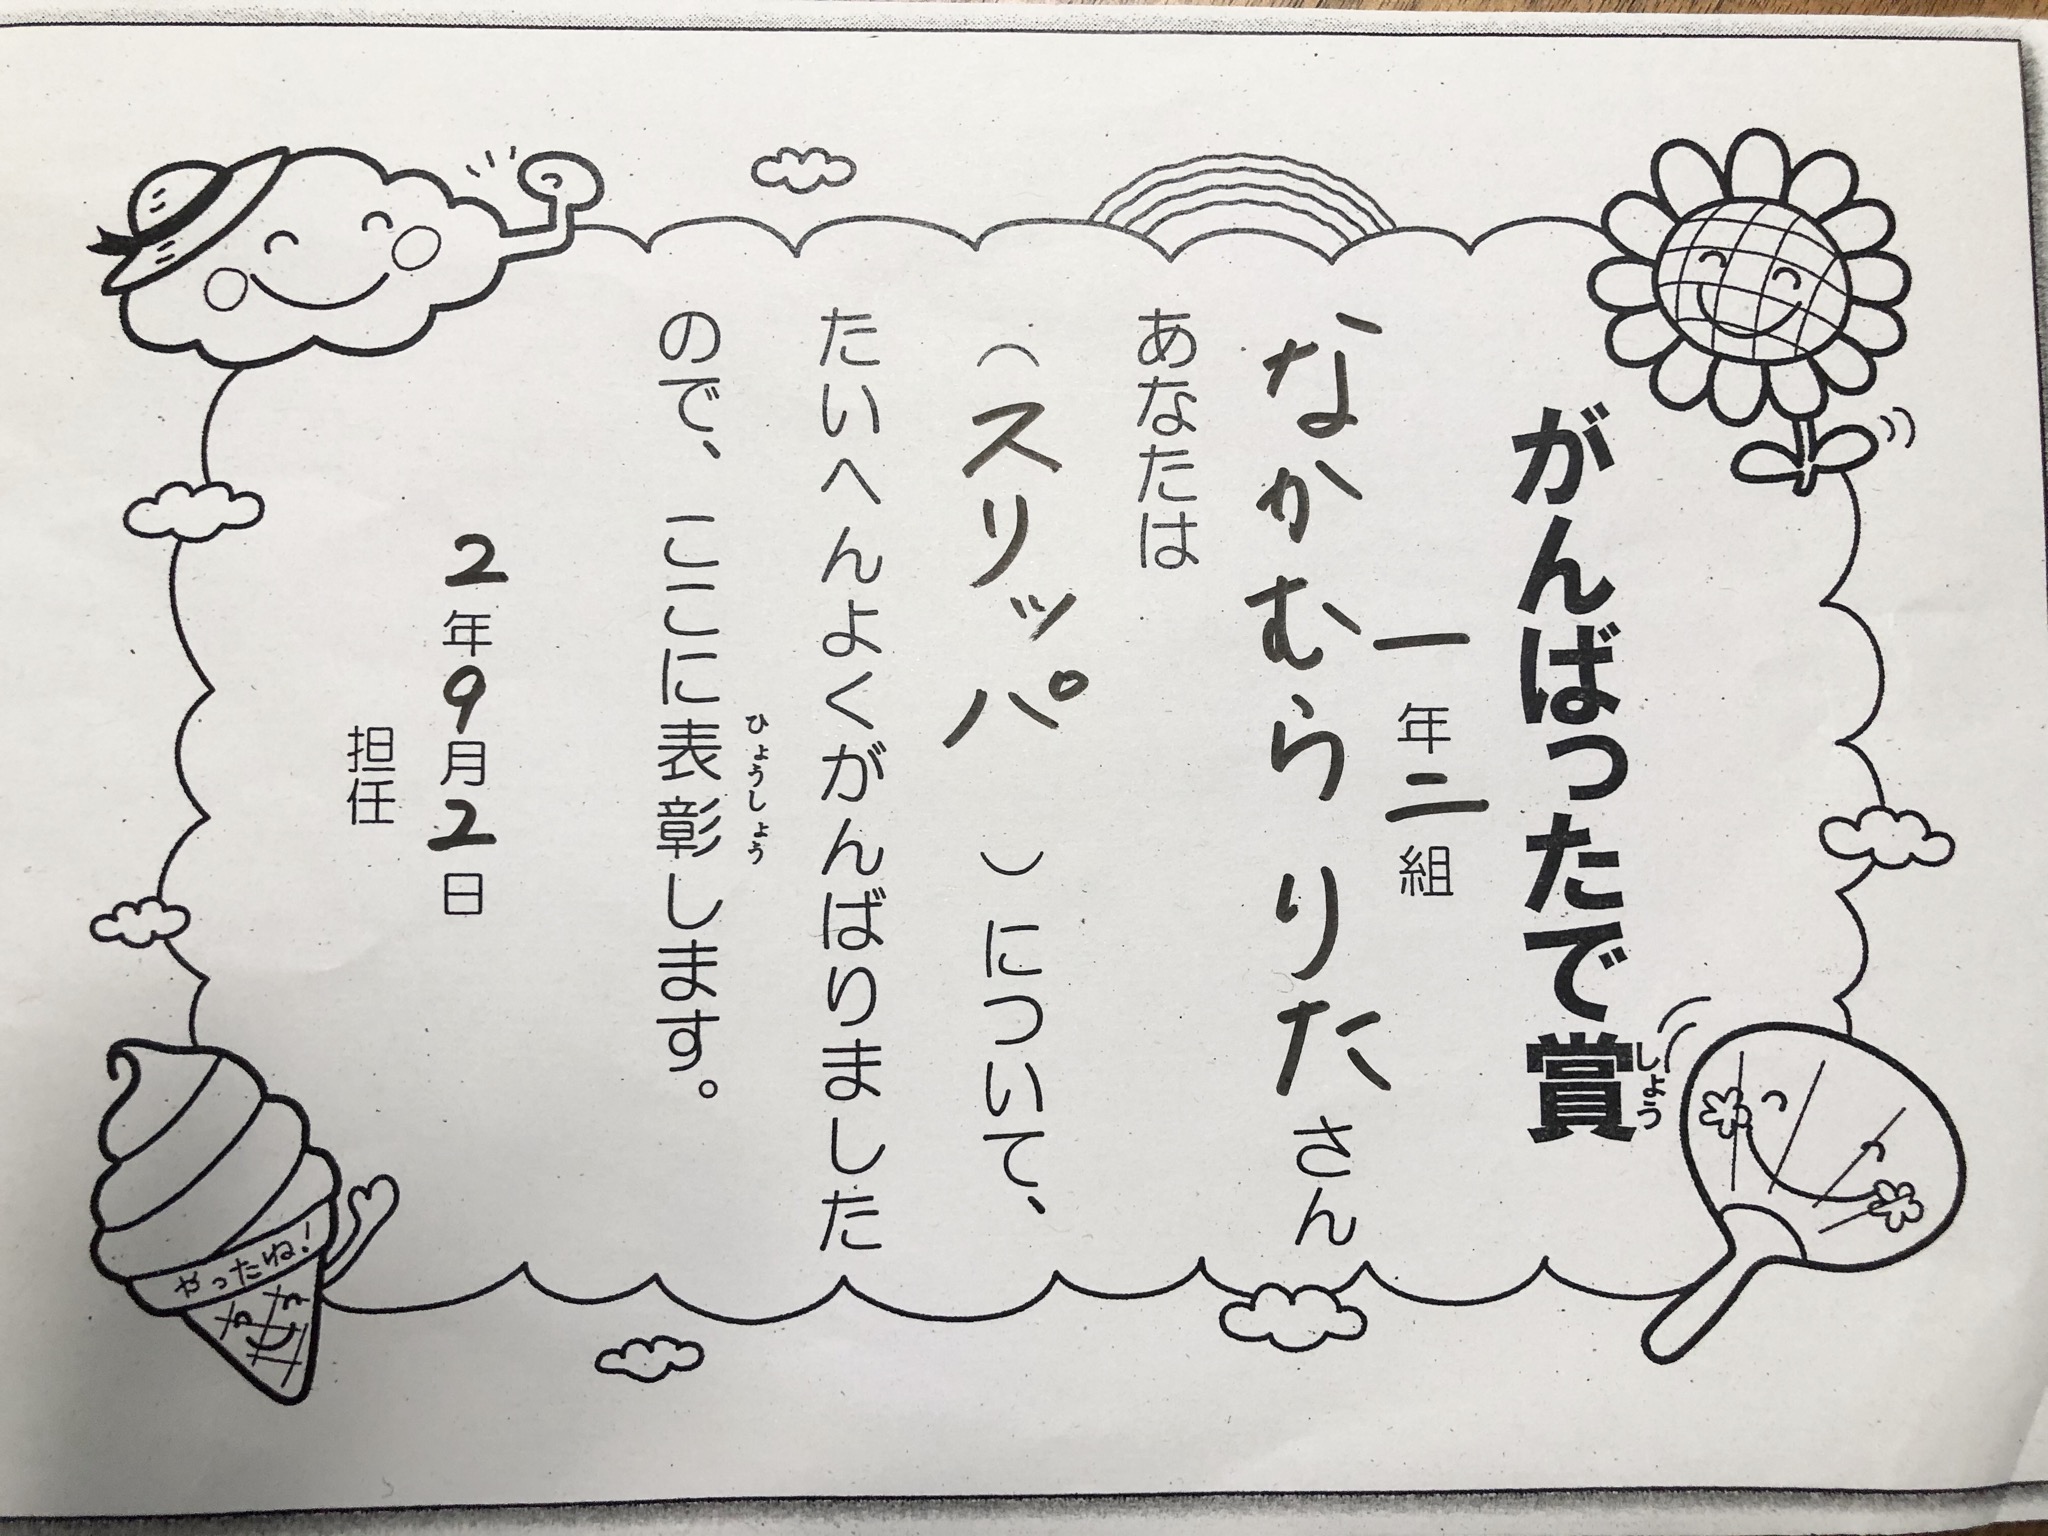 がんばったで賞
しょう
一年二組
なかむら りたさん
あなたは
（スリッパ）について、
たいへんよくがんばりました
ので、ここに表彰します。
ひょうしょう
2年9月2日
担任
やったね！